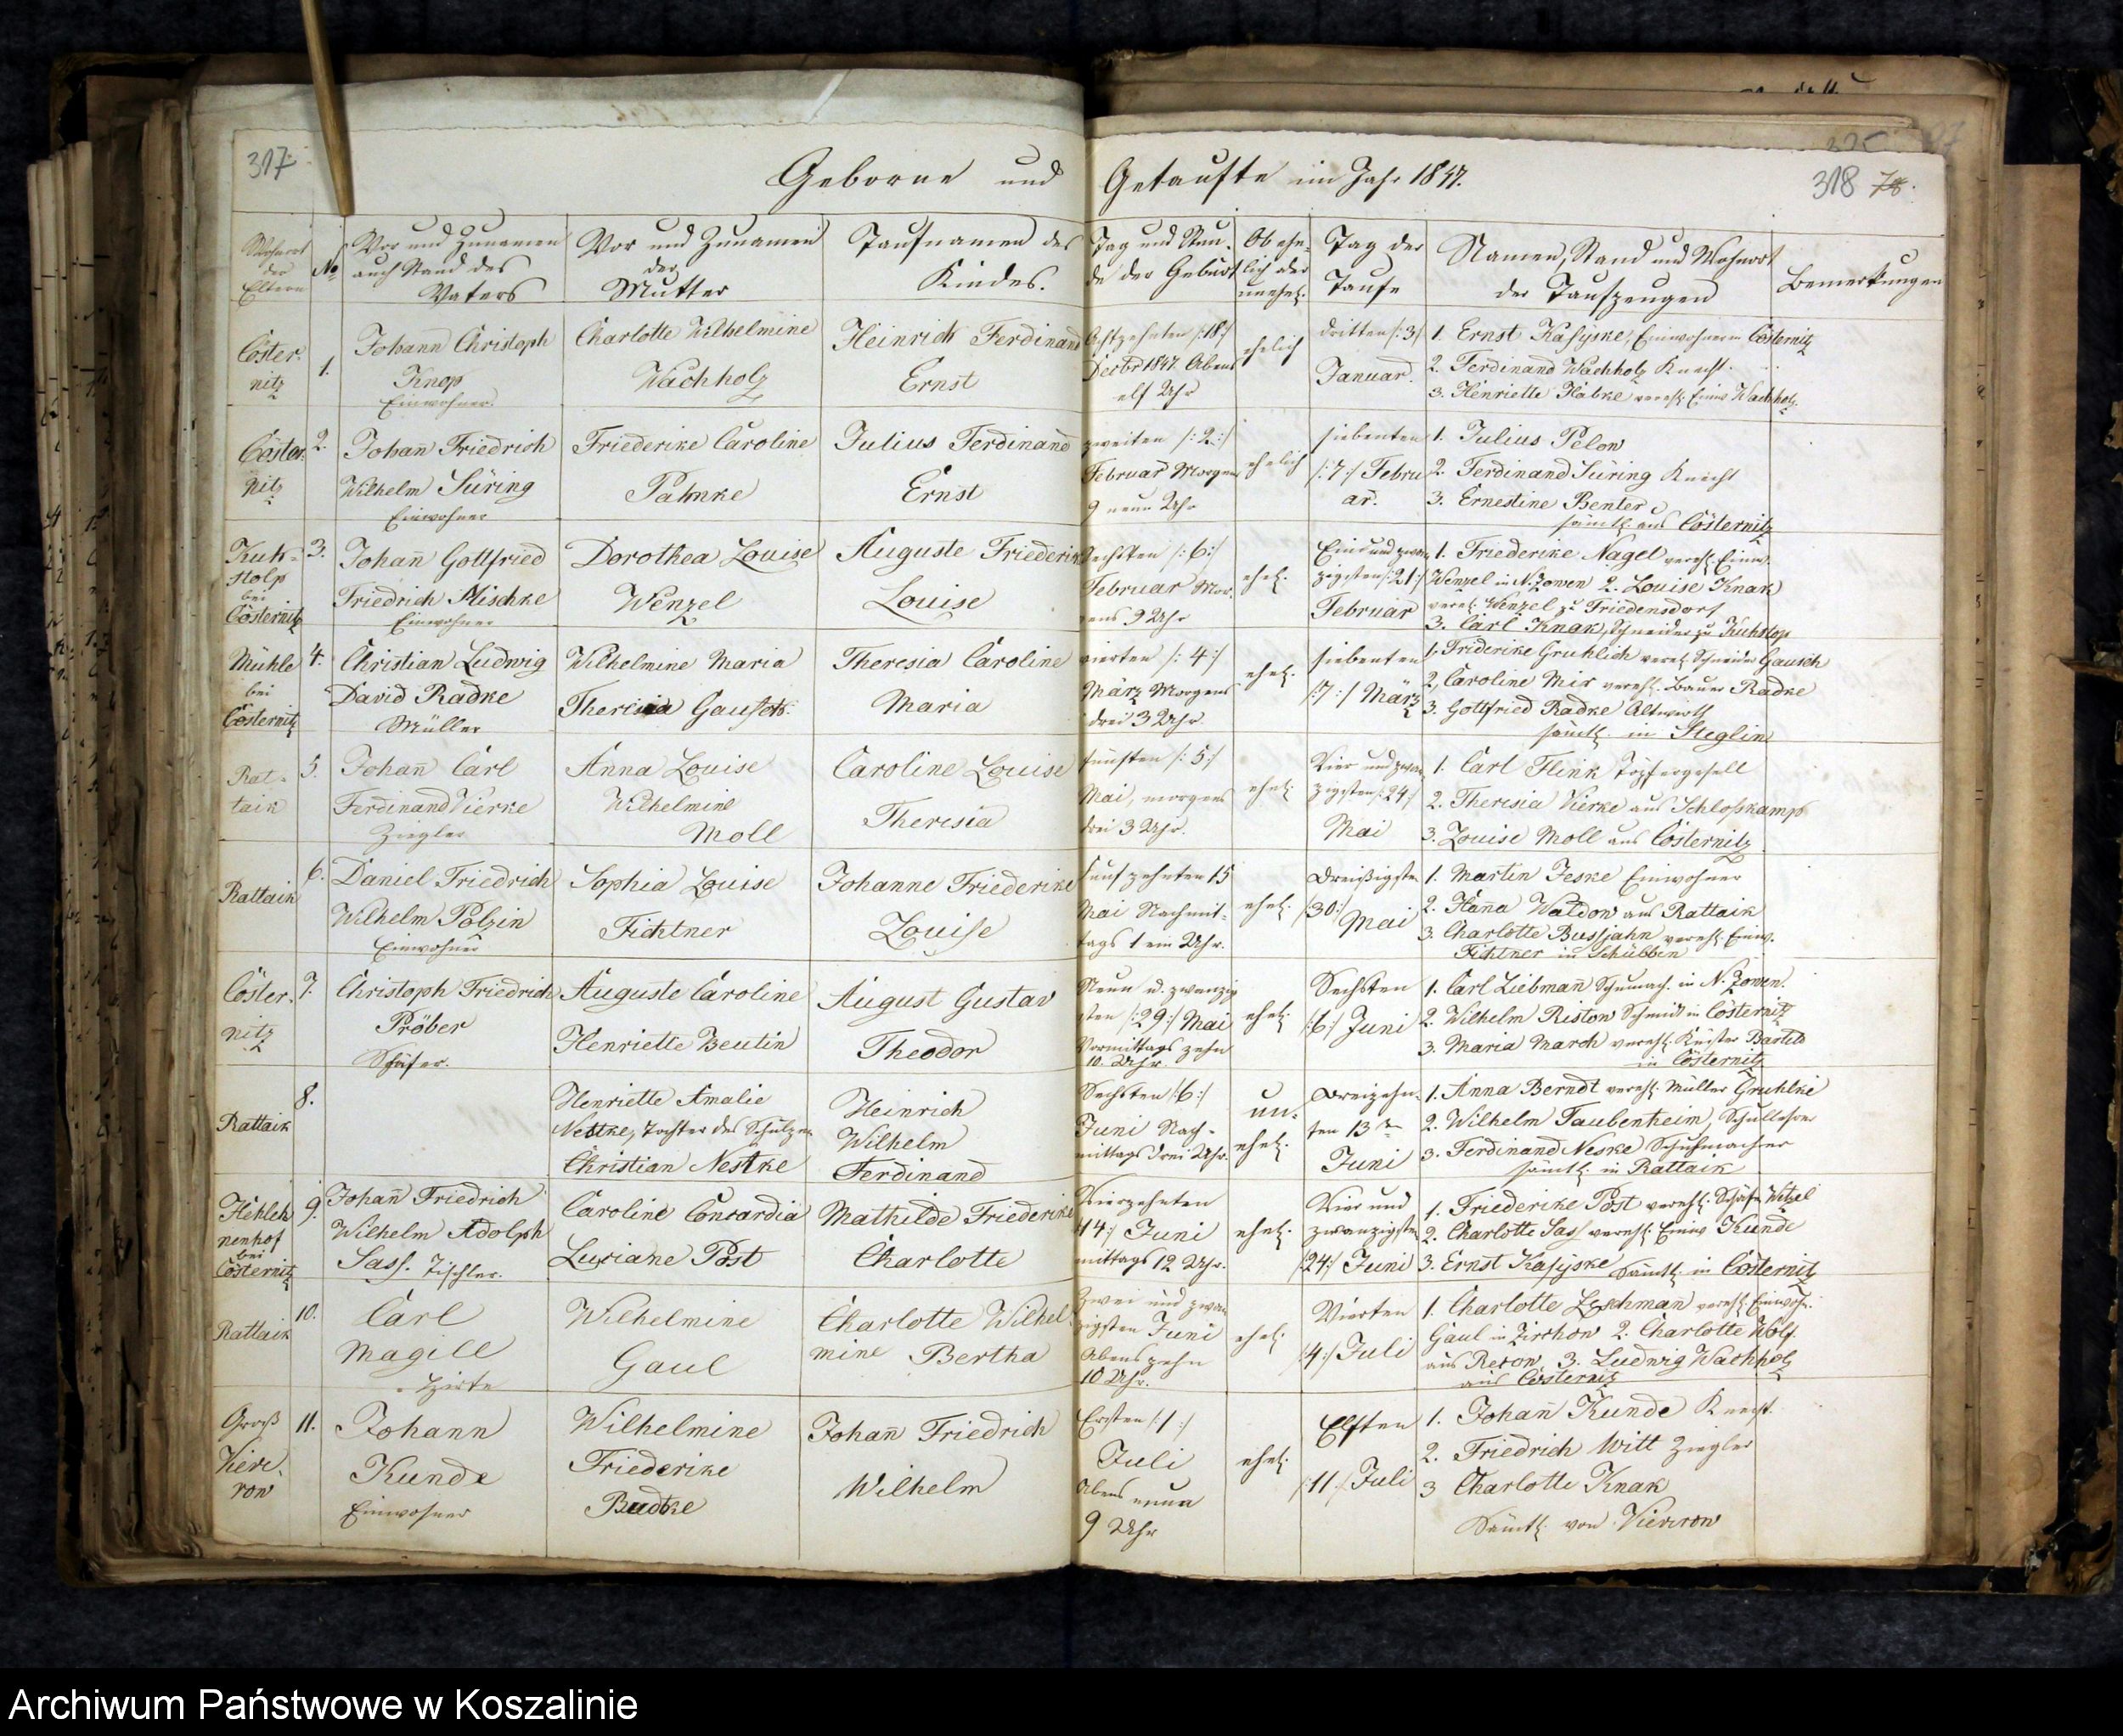 317.
Geborne und Getaufte im Jahr 1847.
318 78.
Wohnort der Eltern
No
Vor und Zunamen auch Stand des Vaters
Vor und Zunamen der Mutter
Taufnamen des Kindes.
Tag und Stunde der Geburt
Ob ehelich oder unehel.
Tag der Taufe
Namen, Stand und Wohnort der Taufzeugen
Bemerkungen
Cösternitz
1.
Johann Christoph
Knop
Einwohner.
Charlotte Wilhelmine
Wachholz
Heinrich Ferdinand
Ernst
Achtzehnten /:18:/
Decbr 1847. Abens
elf Uhr
ehelich
dritten /:3:/
Januar.
1. Ernst Kasiske, Einwohner in Cösternitz
2. Ferdinand Wachholz Knecht.
3. Henriette Habke vereh. Einw Wachholz.
Cösternitz
2.
Johan̄ Friedrich
Wilhelm Süring
Einwohner
Friederike Caroline
Pahnke
Julius Ferdinand
Ernst
zweiten /:2:/
Februar Morgens
9 neun Uhr
ehelich
siebenten
/:7:/ Febru
ar.
1. Julius Pelow
2. Ferdinand Süring Knecht
3. Ernestine Benter
sämtl. aus Cösternitz
Kuhstolp
bei
Cösternitz
3.
Johan̄ Gottfried
Friedrich Mischke
Einwohner
Dorothea Louise
Wenzel
Auguste Friederike
Louise
Sechsten /:6:/
Februar Mor
gens 9 Uhr
ehel.
Ein und zwan
zigsten /:21:/
Februar
1. Friederike Nagel vereh. Einw.
Wenzel in N. Zowen 2. Louise Knak
vereh. Wenzel zu Friedensdorf
3. Carl Knak, Schneider zu Kuhstolp
Mühle
bei
Cösternitz
4.
Christian Ludwig
David Radke
Müller
Wilhelmine Maria
Theresia Gausch.
Theresia Caroline
Maria
vierten /:4:/
März Morgens
drei 3 Uhr
ehel.
siebenten
/:7:/ März
1. Friderike Gruhlich vereh. Schneider Gausch
2. Caroline Mix vereh. Bauer Radke
3. Gottfried Radke Altwirth
sämtl. in Steglin
Rattaik
5.
Johan̄ Carl
Ferdinand Vierke
Ziegler
Anna Louise
Wilhelmine
Moll
Caroline Louise
Theresia
fünften /:5:/
Mai, morgens
drei 3 Uhr.
ehel.
Vier und zwan
zigsten /:24:/
Mai
1. Carl Flink Töpfergesell
2. Theresia Vierke aus Schloßkamp
3. Louise Moll aus Cösternitz
Rattaik
6.
Daniel Friedrich
Wilhelm Polzin
Einwohner
Sophia Louise
Fichtner
Johanne Friederike
Louise
Funfzehnten 15
Mai Nachmit-
tags 1 ein Uhr.
ehel.
Dreißigsten
/30:/ Mai
1. Martin Jeske Einwohner
2. Han̄a Waldow aus Rattaik
3. Charlotte Bussjahn vereh. Einw.
Fichtner in Schübben
Cösternitz
7.
Christoph Friedrich
Pröber
Schäfer.
Auguste Caroline
Henriette Beutin
August Gustav
Theodor
Neun u. zwanzig
sten /:29:/ Mai
Vormittags zehn
10. Uhr.
ehel.
Sechsten
/:6:/ Juni
1. Carl Liebman̄ Schumach. in N. Zowen.
2. Wilhelm Ristow Schmidt in Cösternitz
3. Maria March vereh. Küster Bartelt
in Cösternitz
Rattaik
8.
Henriette Amalie
Nestke, Tochter des Schulzen
Christian Nestke
Heinrich
Wilhelm
Ferdinand
Sechsten /:6:/
Juni Nach-
mittags drei Uhr.
un-
ehel.
Dreizehn-
ten 13
Juni
1. Anna Berndt vereh. Müller Gruhlke
2. Wilhelm Taubenheim, Schullehrer
3. Ferdinand Neske Schuhmacher
sämtl. in Rattaik
nenhof
bei
Cösternitz
9.
Johan̄ Friedrich
Wilhelm Adolph
Sass. Tischler.
Caroline Concardia
Luciane Post
Mathilde Friederike
Charlotte
Vierzehnten
14:/ Juni
mittags 12 Uhr.
ehel.
Vier und
zwanzigsten
/24:/ Juni
1. Friederike Post vereh. Schäfer Wetzel
2. Charlotte Sass vereh. Einw Kunde
3. Ernst Kasiske sämtl. in Cösternitz
Rattaik
10.
Carl
Magill
Hirte
Wilhelmine
Gaul
Charlotte Wilhel
mine Bertha
Zwei und zwan
zigsten Juni
Abens zehn
10 Uhr.
ehel.
Vierten
/:4:/ Juli
1. Charlotte Leschman vereh. Einwoh.
Gaul in Zirchow 2. Charlotte Wolf
aus Retow, 3. Ludwig Wachholz
aus Cösternitz
Groß
11.
Johann
Kunde
Einwohner
Wilhelmine
Friederike
Budtke
Johan̄ Friedrich
Wilhelm
Ersten /:1:/
Juli
Abens neun
9 Uhr
ehel.
Elften
/:11:/ Juli
1. Johan̄ Kunde Knecht.
2. Friedrich Witt Ziegler
3 Charlotte Knak
Sämtl. von
Archiwum Państwowe w Koszalinie